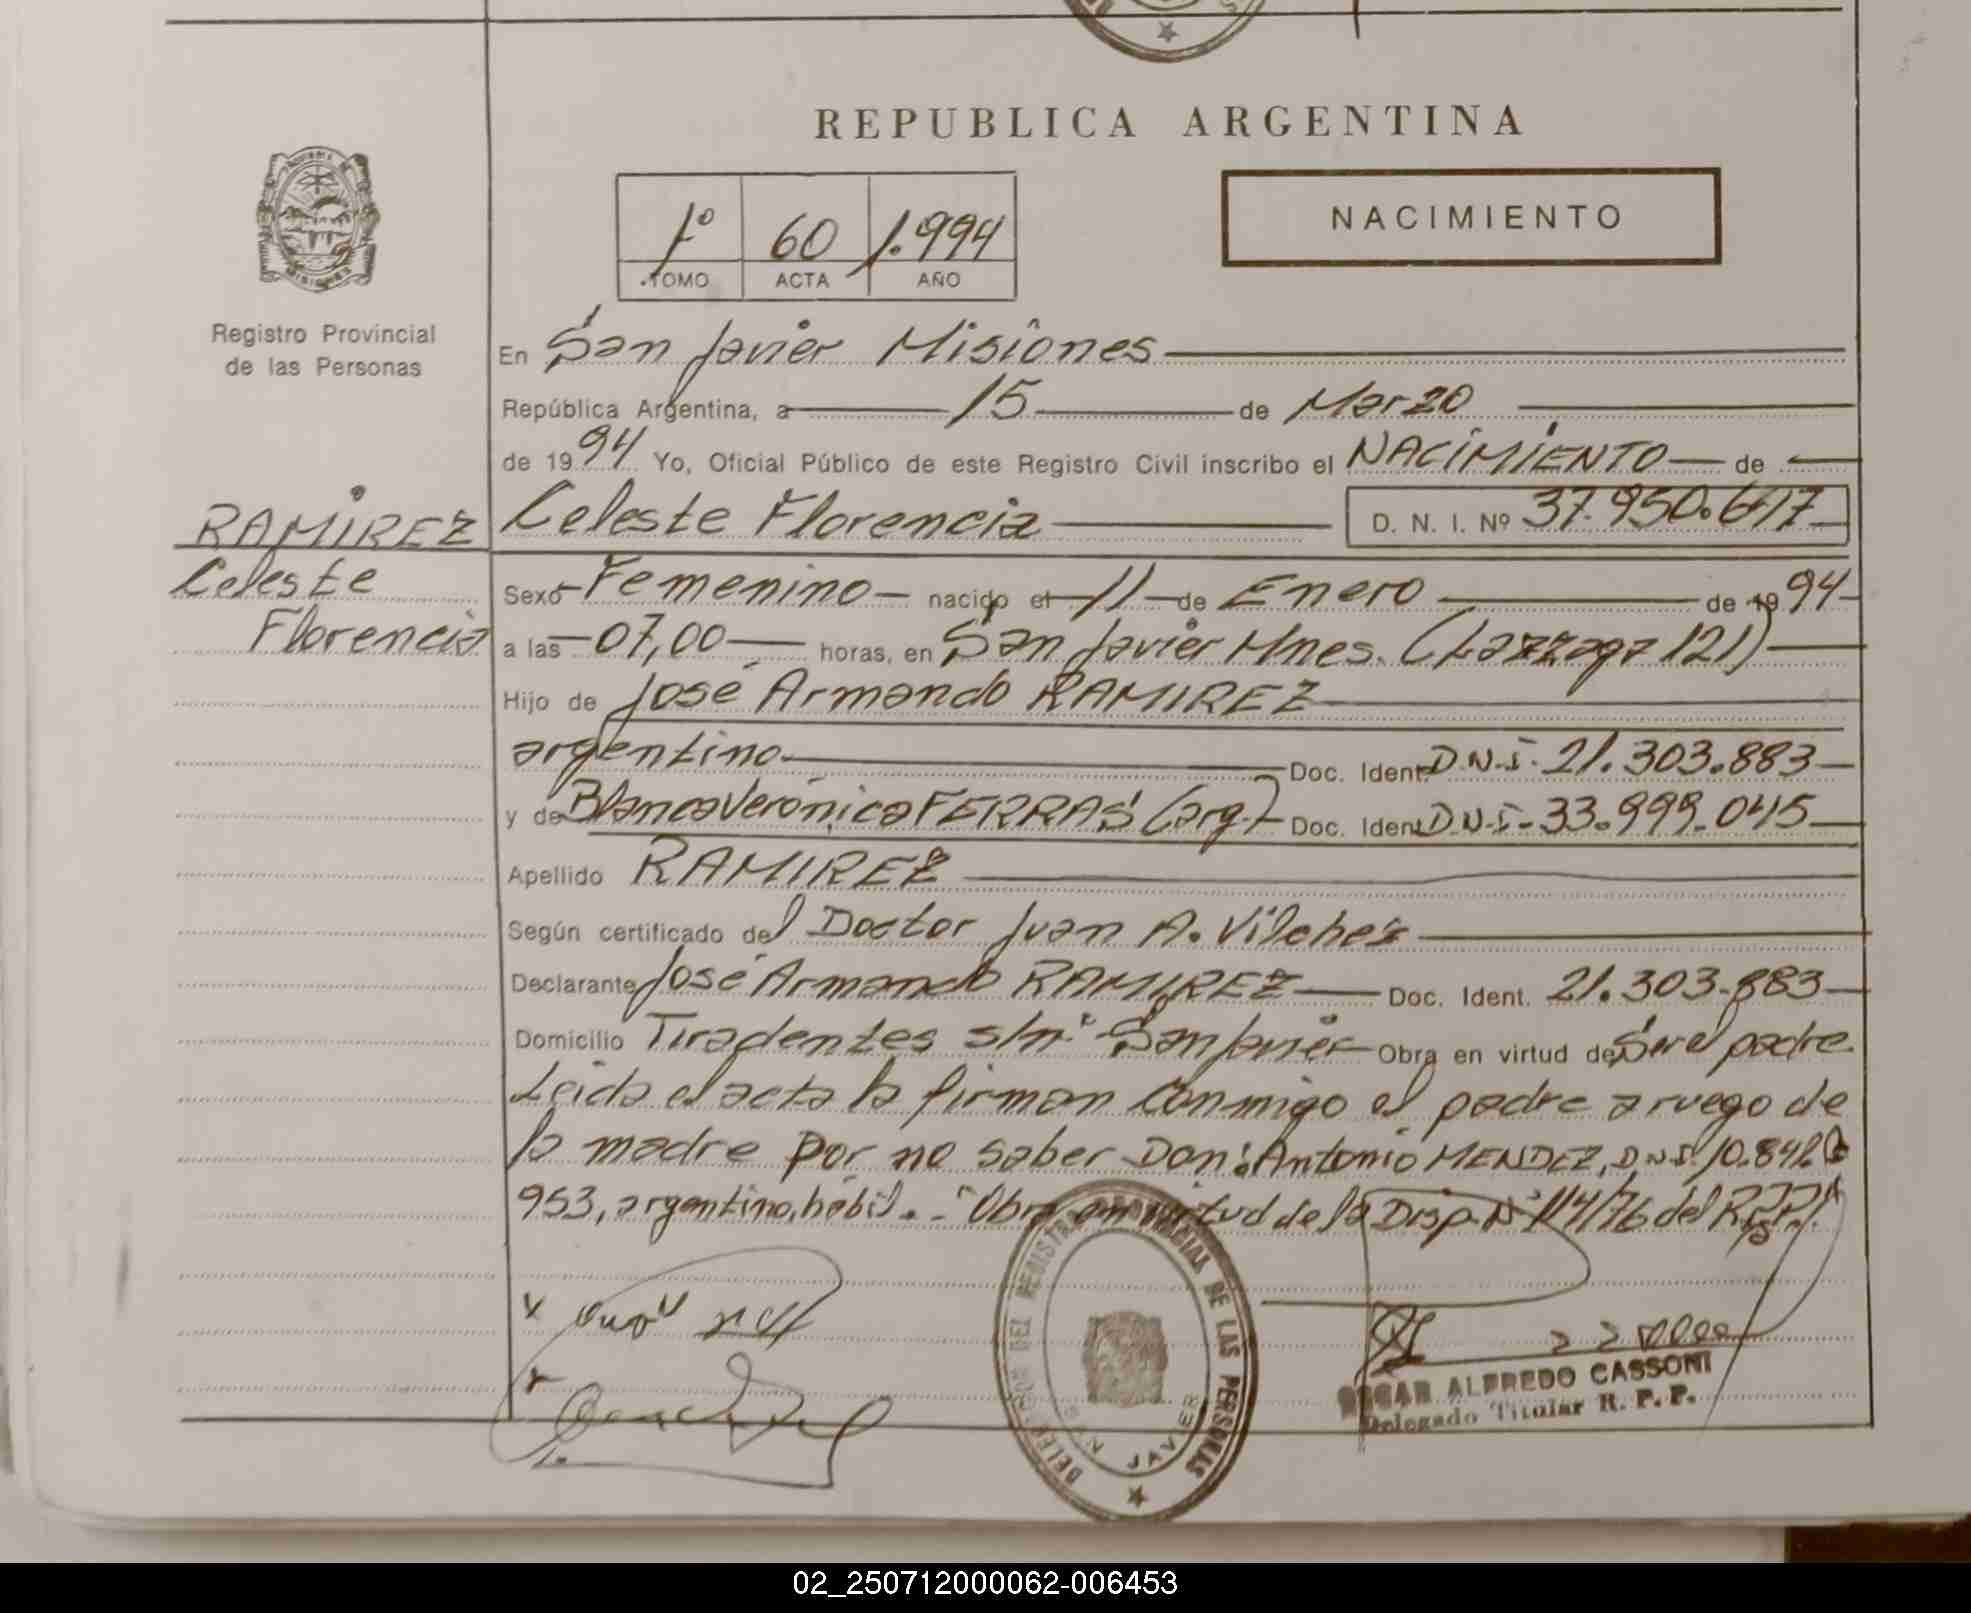 REPUBLICA ARGENTINA
1º 60 1.994
TOMO ACTA AÑO
NACIMIENTO
Registro Provincial
de las Personas
En San Javier Misiones
República Argentina, a 15 de Marzo
de 1994 Yo, Oficial Público de este Registro Civil inscribo el NACIMIENTO de
RAMIREZ
Celeste
Florencia
Celeste Florencia D. N. I. Nº 37.950.617
Sexo Femenino nacido el 11 de Enero de 1994
a las 07,00 horas, en San Javier Mnes. (Lazzaga 121)
Hijo de José Armando RAMIREZ
argentino Doc. Ident D.N.I. 21.303.883
y de Blanca Verónica FERRAS (arg.) Doc. Ident D.N.I. 33.999.045
Apellido RAMIREZ
Según certificado del Doctor Juan A. Vilches
Declarante José Armando RAMIREZ Doc. Ident. 21.303.883
Domicilio Tiradentes s/nº San Javier Obra en virtud de Ser el padre
Leida el acta la firman conmigo el padre a ruego de
la madre por no saber Don: Antonio MENDEZ, D.N.I. 10.842.
953, argentino, hábil.- "Obra en virtud de la Disp. Nº 114/76 del R.P.P."
DEL REGISTRO PROVINCIAL DE LAS PERSONAS
SAN JAVIER
OSCAR ALFREDO CASSONI
Delegado Titular R. P. P.
02_250712000062-006453